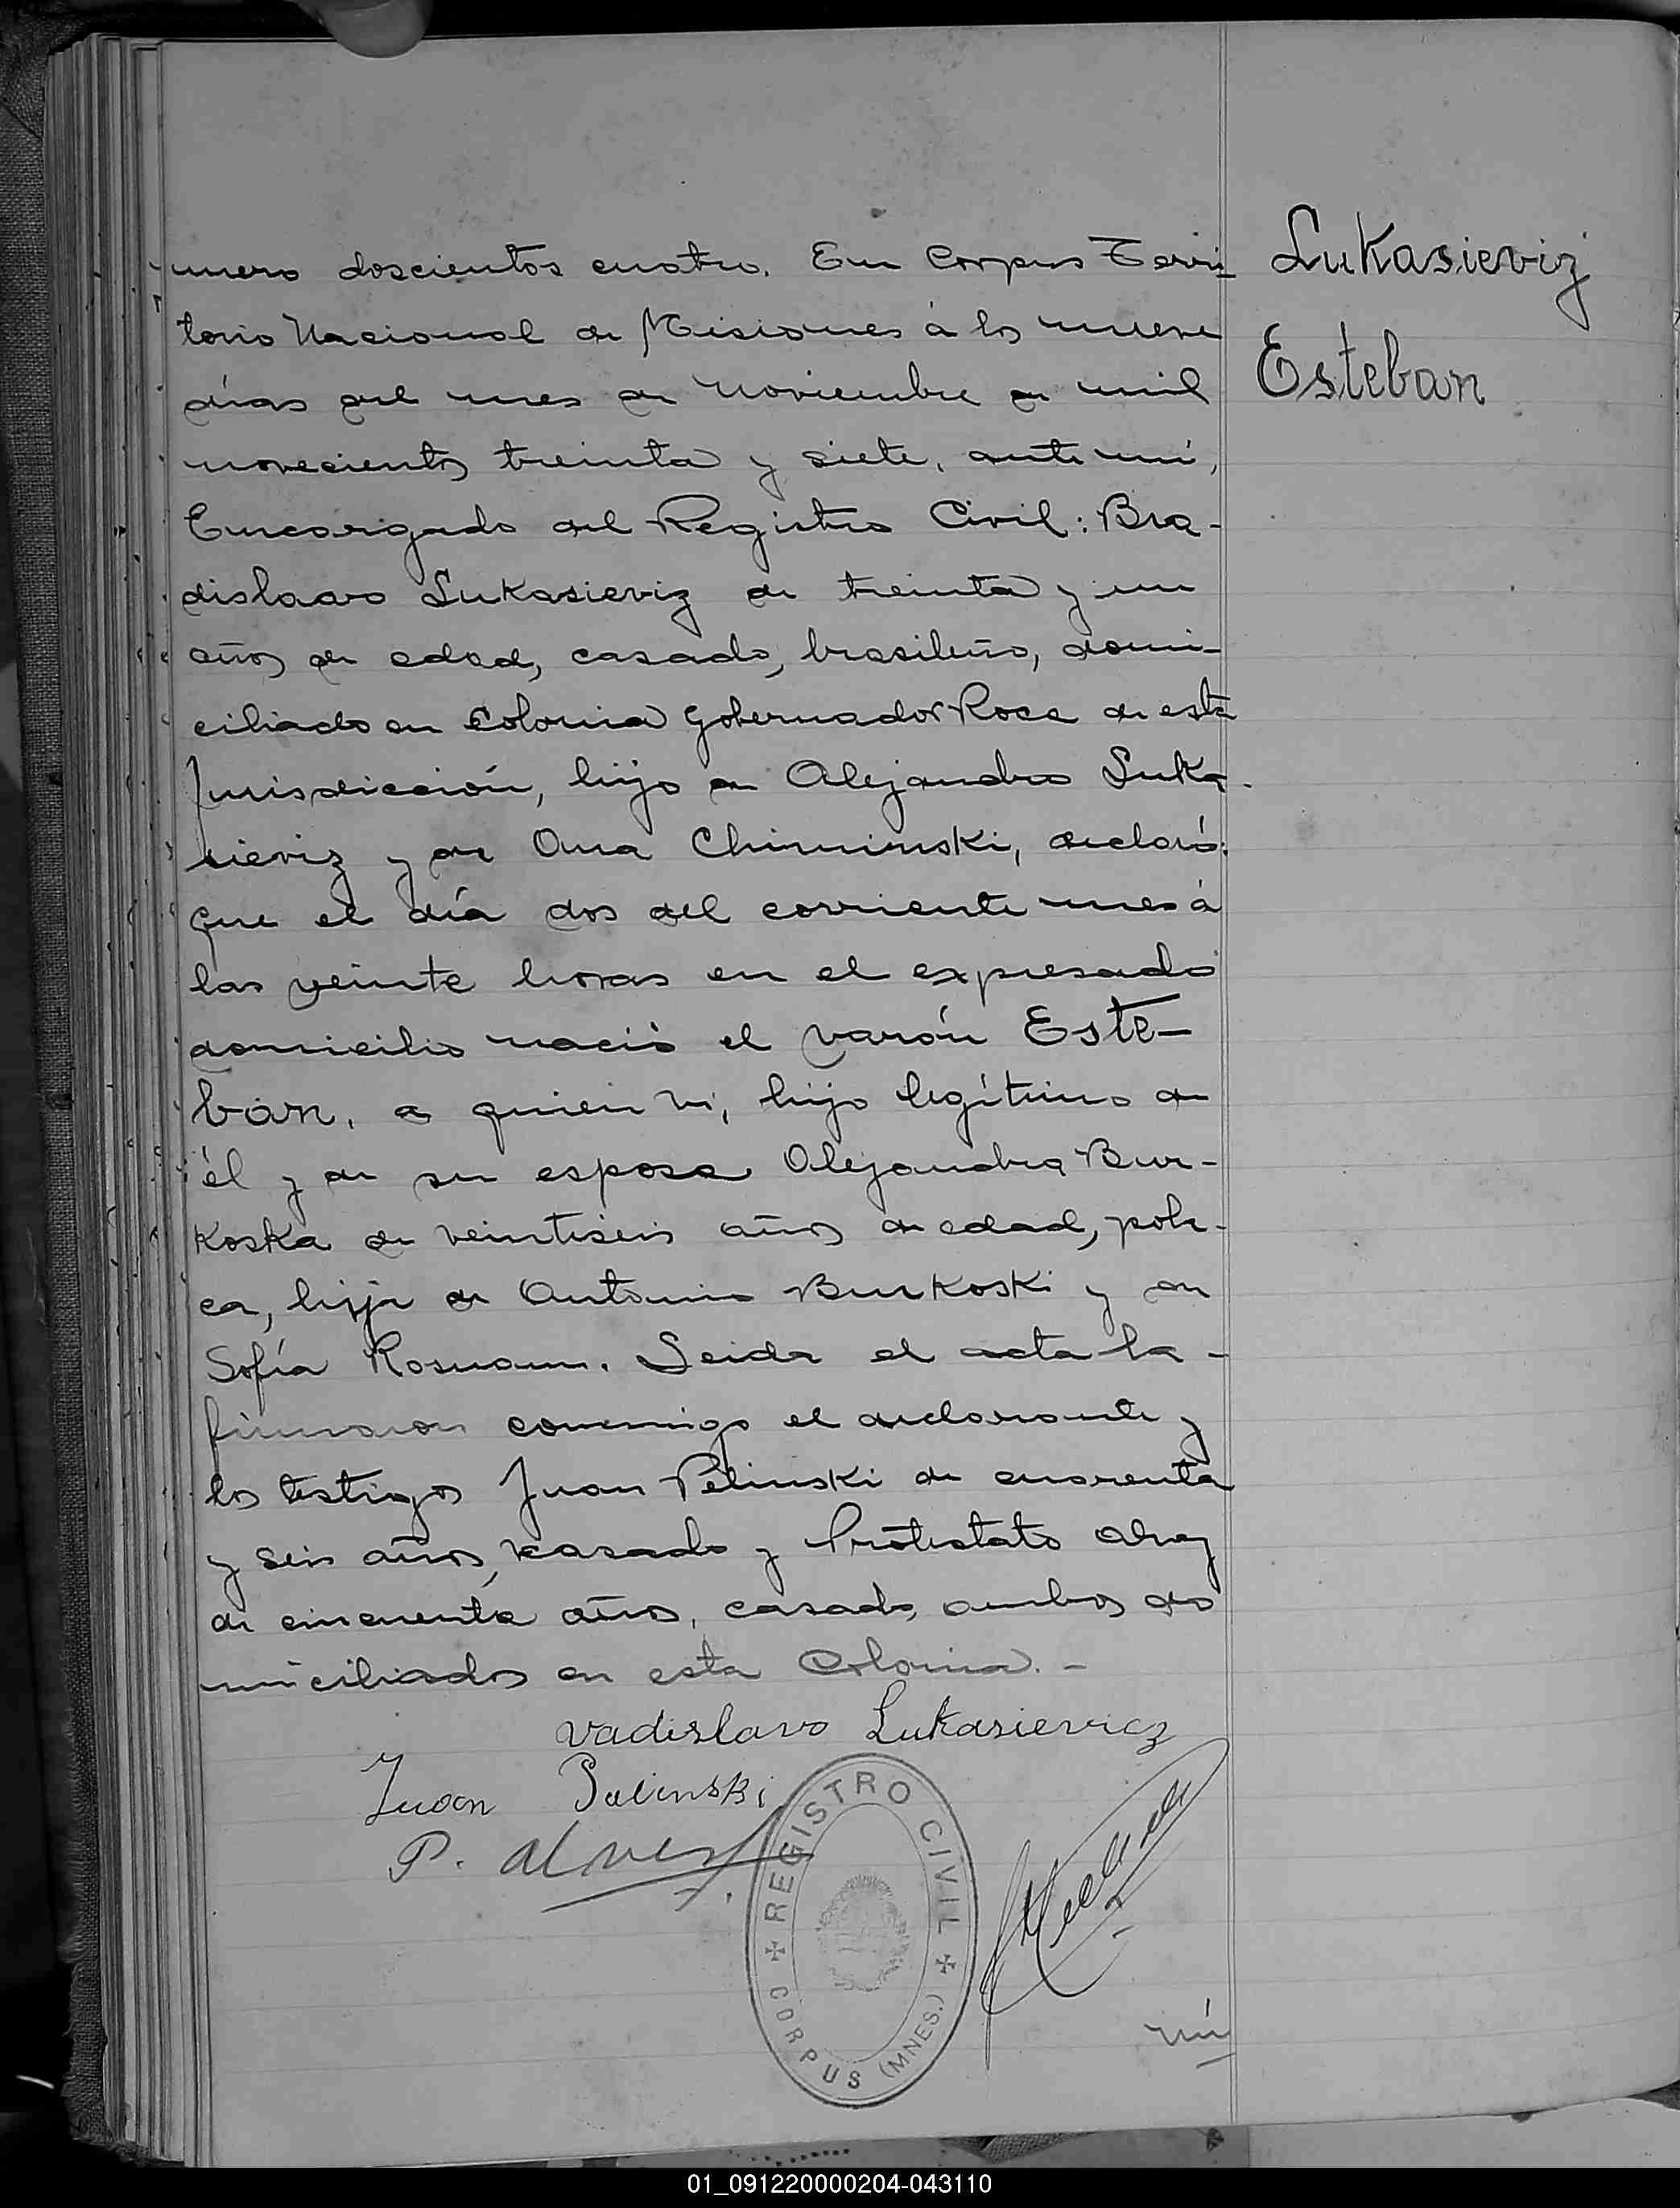 mero doscientos cuatro. En Corpus Terri-
torio Nacional de Misiones á los nueve
días del mes de Noviembre de mil
novecientos treinta y siete, ante mí,
Encargado del Registro Civil: Bra-
dislavo Lukasieviz de treinta y un
años de edad, casado, brasileño, domi-
ciliado en Colonia Gobernador Roca de esta
Jurisdicción, hijo de Alejandro Luka-
sieviz y de Ana Chiminski, declaró:
que el día dos del corriente mes á
las veinte horas en el expresado
domicilio nació el varón Este-
ban, a quien vi, hijo legítimo de
él y de su esposa Alejandra Bur-
koska de veintiseis años de edad, pola-
ca, hija de Antonio Burkoski y de
Sofía Rosmann. Leida el acta la-
firmaron conmigo el declarante y
los testigos Juan Pelinski de cuarenta
y seis años, casado y Protestato Alvez
de cincuenta años, casado, ambos do
miciliados en esta Colonia.-
Vadislavo Lukasievicz
Juan Palinski
P. Alvez
REGISTRO CIVIL
CORPUS (MNES.)
nú
Lukasieviz
Esteban
01_091220000204-043110